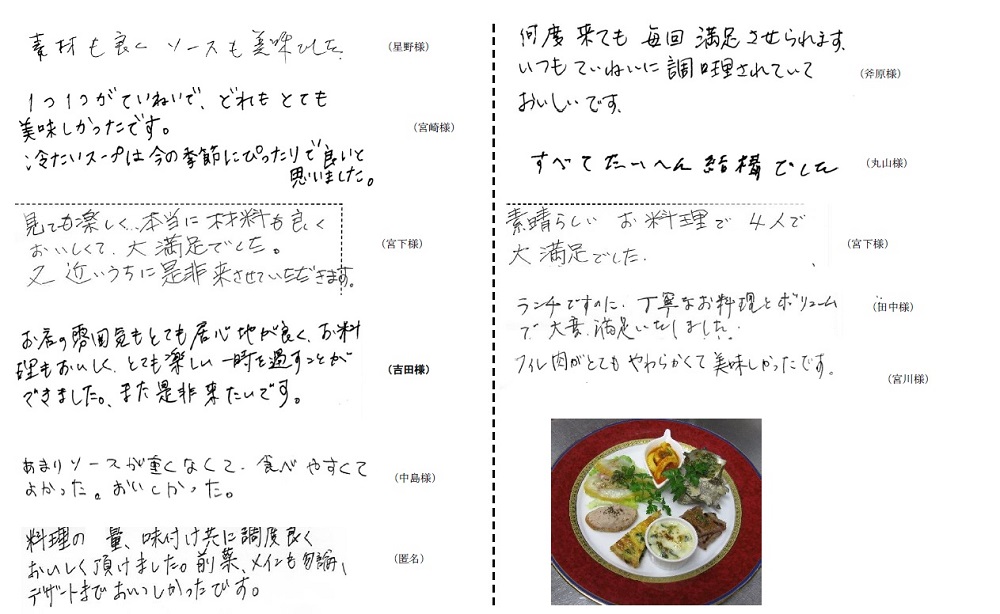 素材も良く ソースも美味でした
（星野様）
1つ1つがていねいで、どれもとても
美味しかったです。
（宮崎様）
冷たいスープは今の季節にぴったりで良いと
思いました。
見ても楽しく、本当に材料も良く
おいしくて、大満足でした。
（宮下様）
又 近いうちに是非来させていただきます。
お店の雰囲気もとても居心地が良く、お料
理もおいしく、とても楽しい一時を過すことが
（吉田様）
できました。また是非来たいです。
あまりソースが重くなくて、食べやすくて
よかった。おいしかった。
（中島様）
料理の 量、味付け共に調度良く
おいしく頂けました。前菜、メインも勿論、
（匿名）
デザートまでおいしかったです。
何度来ても 毎回 満足させられます。
いつもていねいに調理されていて
（斧原様）
おいしいです。
すべてたいへん結構でした
（丸山様）
素晴らしい お料理で 4人で
大満足でした。
（宮下様）
ランチですのに、丁寧なお料理とボリューム
で大変満足いたしました。
（田中様）
フィレ肉がとてもやわらかくて美味しかったです。
（宮川様）